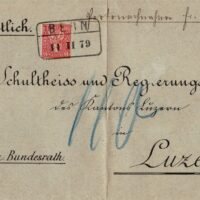 tlich.
BERN
11 II 79
Schultheiss und Regierungs
des Kantons Luzern
in
Luze
Bundesrath.